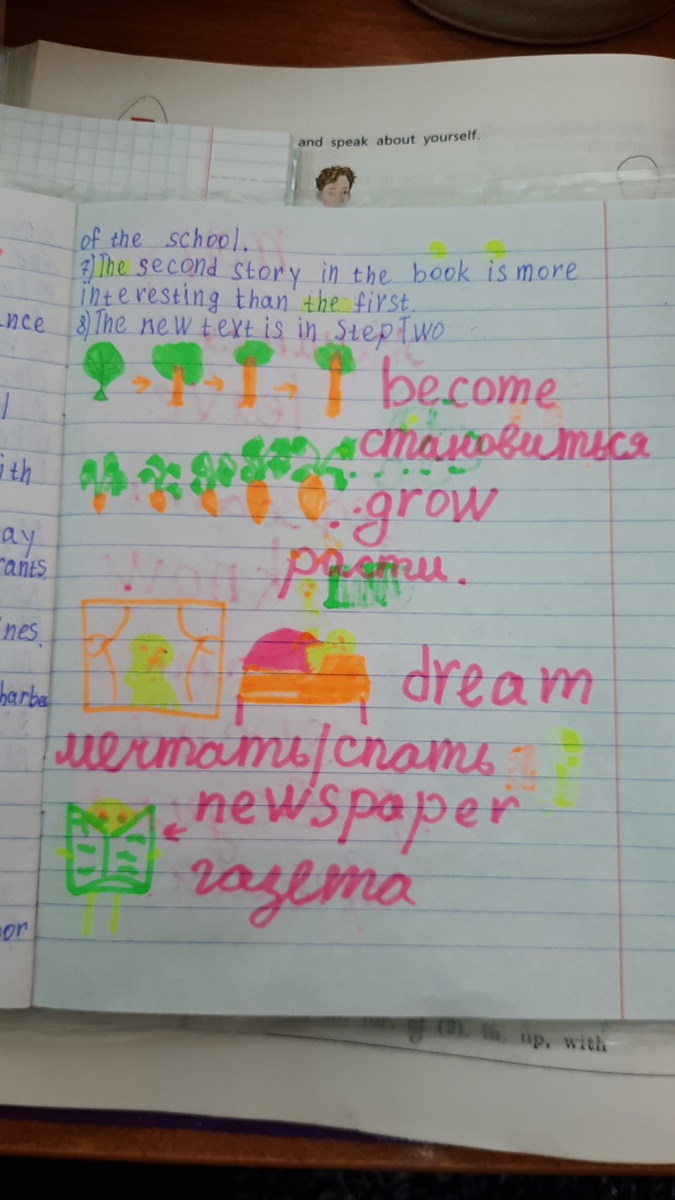 and speak about yourself.
of the school.
7) The second story in the book is more
interesting than the first.
8) The new text is in Step Two
become
становиться
grow
расти.
dream
мечтать/спать
newspaper
газета
nce
ith
ay
rants
nes.
or
up, with